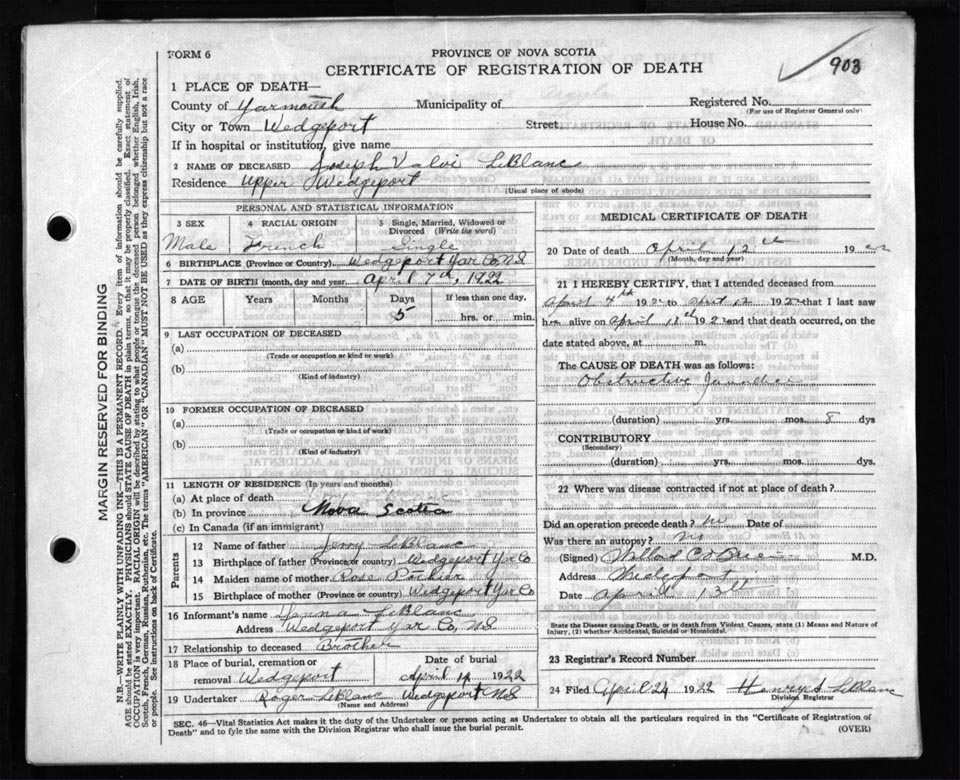 903
FORM 6
PROVINCE OF NOVA SCOTIA
CERTIFICATE OF REGISTRATION OF DEATH
1 PLACE OF DEATH—
County of Yarmouth Municipality of Registered No.
(For use of Registrar General only)
City or Town Wedgeport Street House No.
If in hospital or institution, give name
2 NAME OF DECEASED Joseph LeBlanc
Residence Upper Wedgeport
(Usual place of abode)
PERSONAL AND STATISTICAL INFORMATION
3 SEX 4 RACIAL ORIGIN 5 Single, Married, Widowed or Divorced (Write the word)
Male French Single
6 BIRTHPLACE (Province or Country) Wedgeport Yar Co, N.S
7 DATE OF BIRTH (month, day and year) April 7th, 1922
8 AGE Years Months Days If less than one day,
5 hrs. or min.
9 LAST OCCUPATION OF DECEASED
(a)
(Trade or occupation or kind or work)
(b)
(Kind of industry)
10 FORMER OCCUPATION OF DECEASED
(a)
(Trade or occupation or kind of work)
(b)
(Kind of industry)
11 LENGTH OF RESIDENCE (In years and months)
(a) At place of death
(b) In province Nova Scotia
(c) In Canada (if an immigrant)
Parents
12 Name of father LeBlanc
13 Birthplace of father (Province or country) Wedgeport Yar Co
14 Maiden name of mother Rose
15 Birthplace of mother (Province or country) Wedgeport Yar Co
16 Informant's name LeBlanc
Address Wedgeport Yar Co, N.S
17 Relationship to deceased Brother
18 Place of burial, cremation or removal Wedgeport
Date of burial April 14 1922
19 Undertaker Roger LeBlanc Wedgeport N.S
(Name and Address)
MEDICAL CERTIFICATE OF DEATH
20 Date of death April 12th 1922
(Month, day and year)
21 I HEREBY CERTIFY, that I attended deceased from
April 192 to April 12 1922 that I last saw
h alive on April 192 and that death occurred, on
date stated above, at m.
The CAUSE OF DEATH was as follows:
Obstructive Jaundice
(duration) yrs. mos. 8 dys
CONTRIBUTORY
(Secondary)
(duration) yrs. mos. dys.
22 Where was disease contracted if not at place of death?
Did an operation precede death? no Date of
Was there an autopsy? no
(Signed) M.D.
Address
Date April 13th
State the Disease causing Death, or in death from Violent Causes, state (1) Means and Nature of
Injury, (2) whether Accidental, Suicidal or Homicidal.
23 Registrar's Record Number
24 Filed April 24 1922 Henry LeBlanc
Division Registrar
SEC. 46—Vital Statistics Act makes it the duty of the Undertaker or person acting as Undertaker to obtain all the particulars required in the "Certificate of Registration of
Death" and to fyle the same with the Division Registrar who shall issue the burial permit.
(OVER)
MARGIN RESERVED FOR BINDING
N.B.—WRITE PLAINLY WITH UNFADING INK—THIS IS A PERMANENT RECORD. Every item of information should be carefully supplied.
AGE should be stated EXACTLY. PHYSICIANS should STATE CAUSE OF DEATH in plain terms, so that it may be properly classified. Exact statement of
OCCUPATION is very important. RACIAL ORIGIN will be described by stating to what people or tongue the deceased person belonged whether English, Irish,
Scotch, French, German, Russian, Ruthenian, etc. The terms "AMERICAN" OR "CANADIAN" MUST NOT BE USED as they express citizenship but not a race
or people. See instructions on back of Certificate.